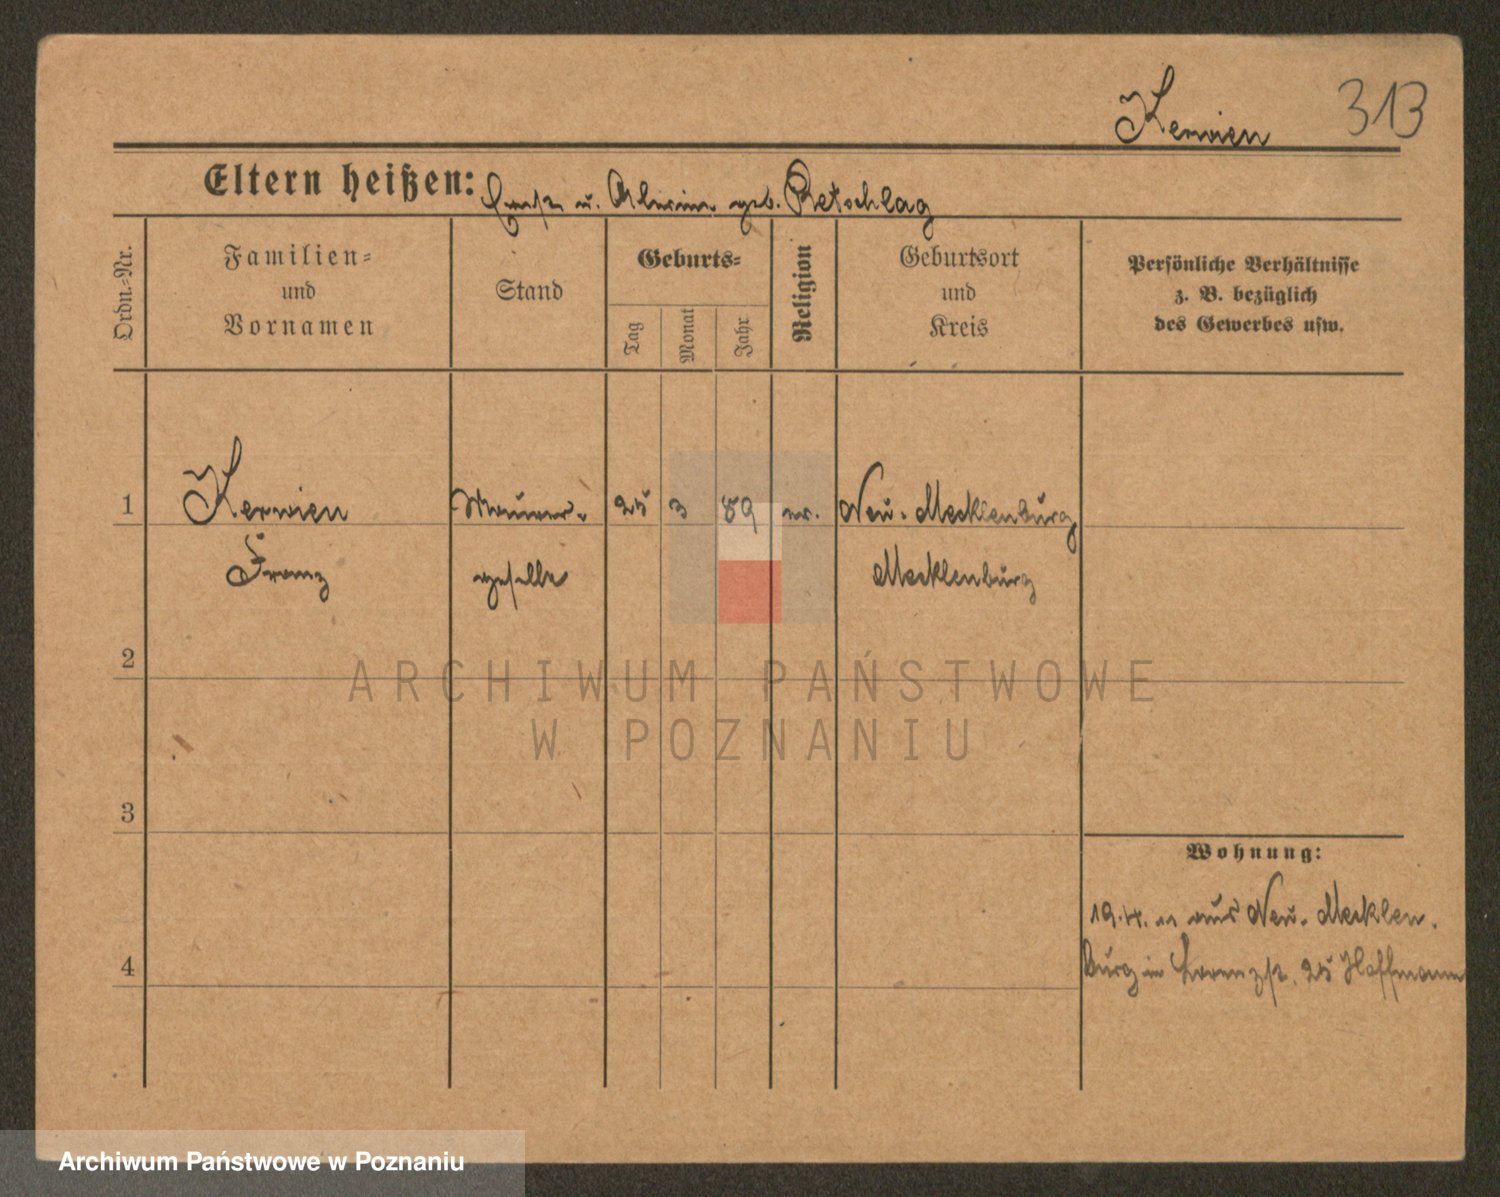 Kerwien 313
Eltern heißen: Ernst u. geb. Retschlag
Ordn.-Nr.
Familien-
und
Vornamen
Stand
Geburts-
Tag
Monat
Jahr
Religion
Geburtsort
und
Kreis
Persönliche Verhältnisse
z. B. bezüglich
des Gewerbes usw.
1 Kerwien Maurer- 25 3 89 ev. Neu-Mecklenburg
Franz geselle Mecklenburg
2
3
4
ARCHIWUM PAŃSTWOWE
W POZNANIU
Wohnung:
19.4. 11 aus Neu-Mecklen-
burg in 25 Hoffmann
Archiwum Państwowe w Poznaniu